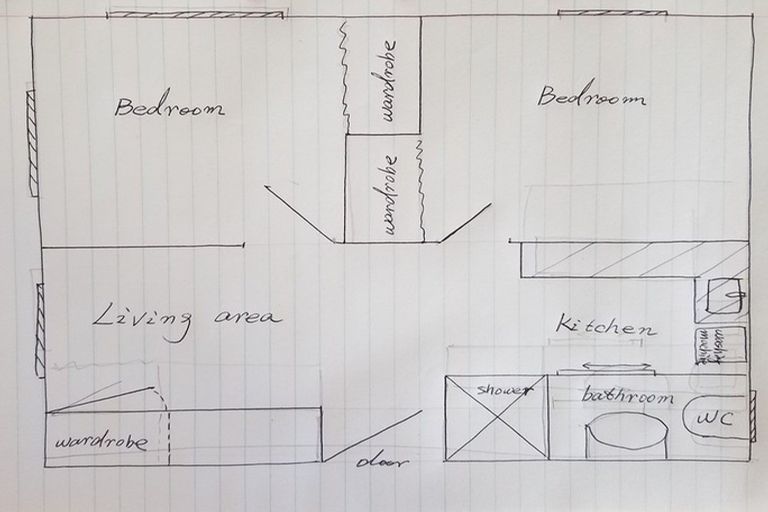 wardrobe
Bedroom
Bedroom
wardrobe
Living area
Kitchen
shower
bathroom
WC
wardrobe
door